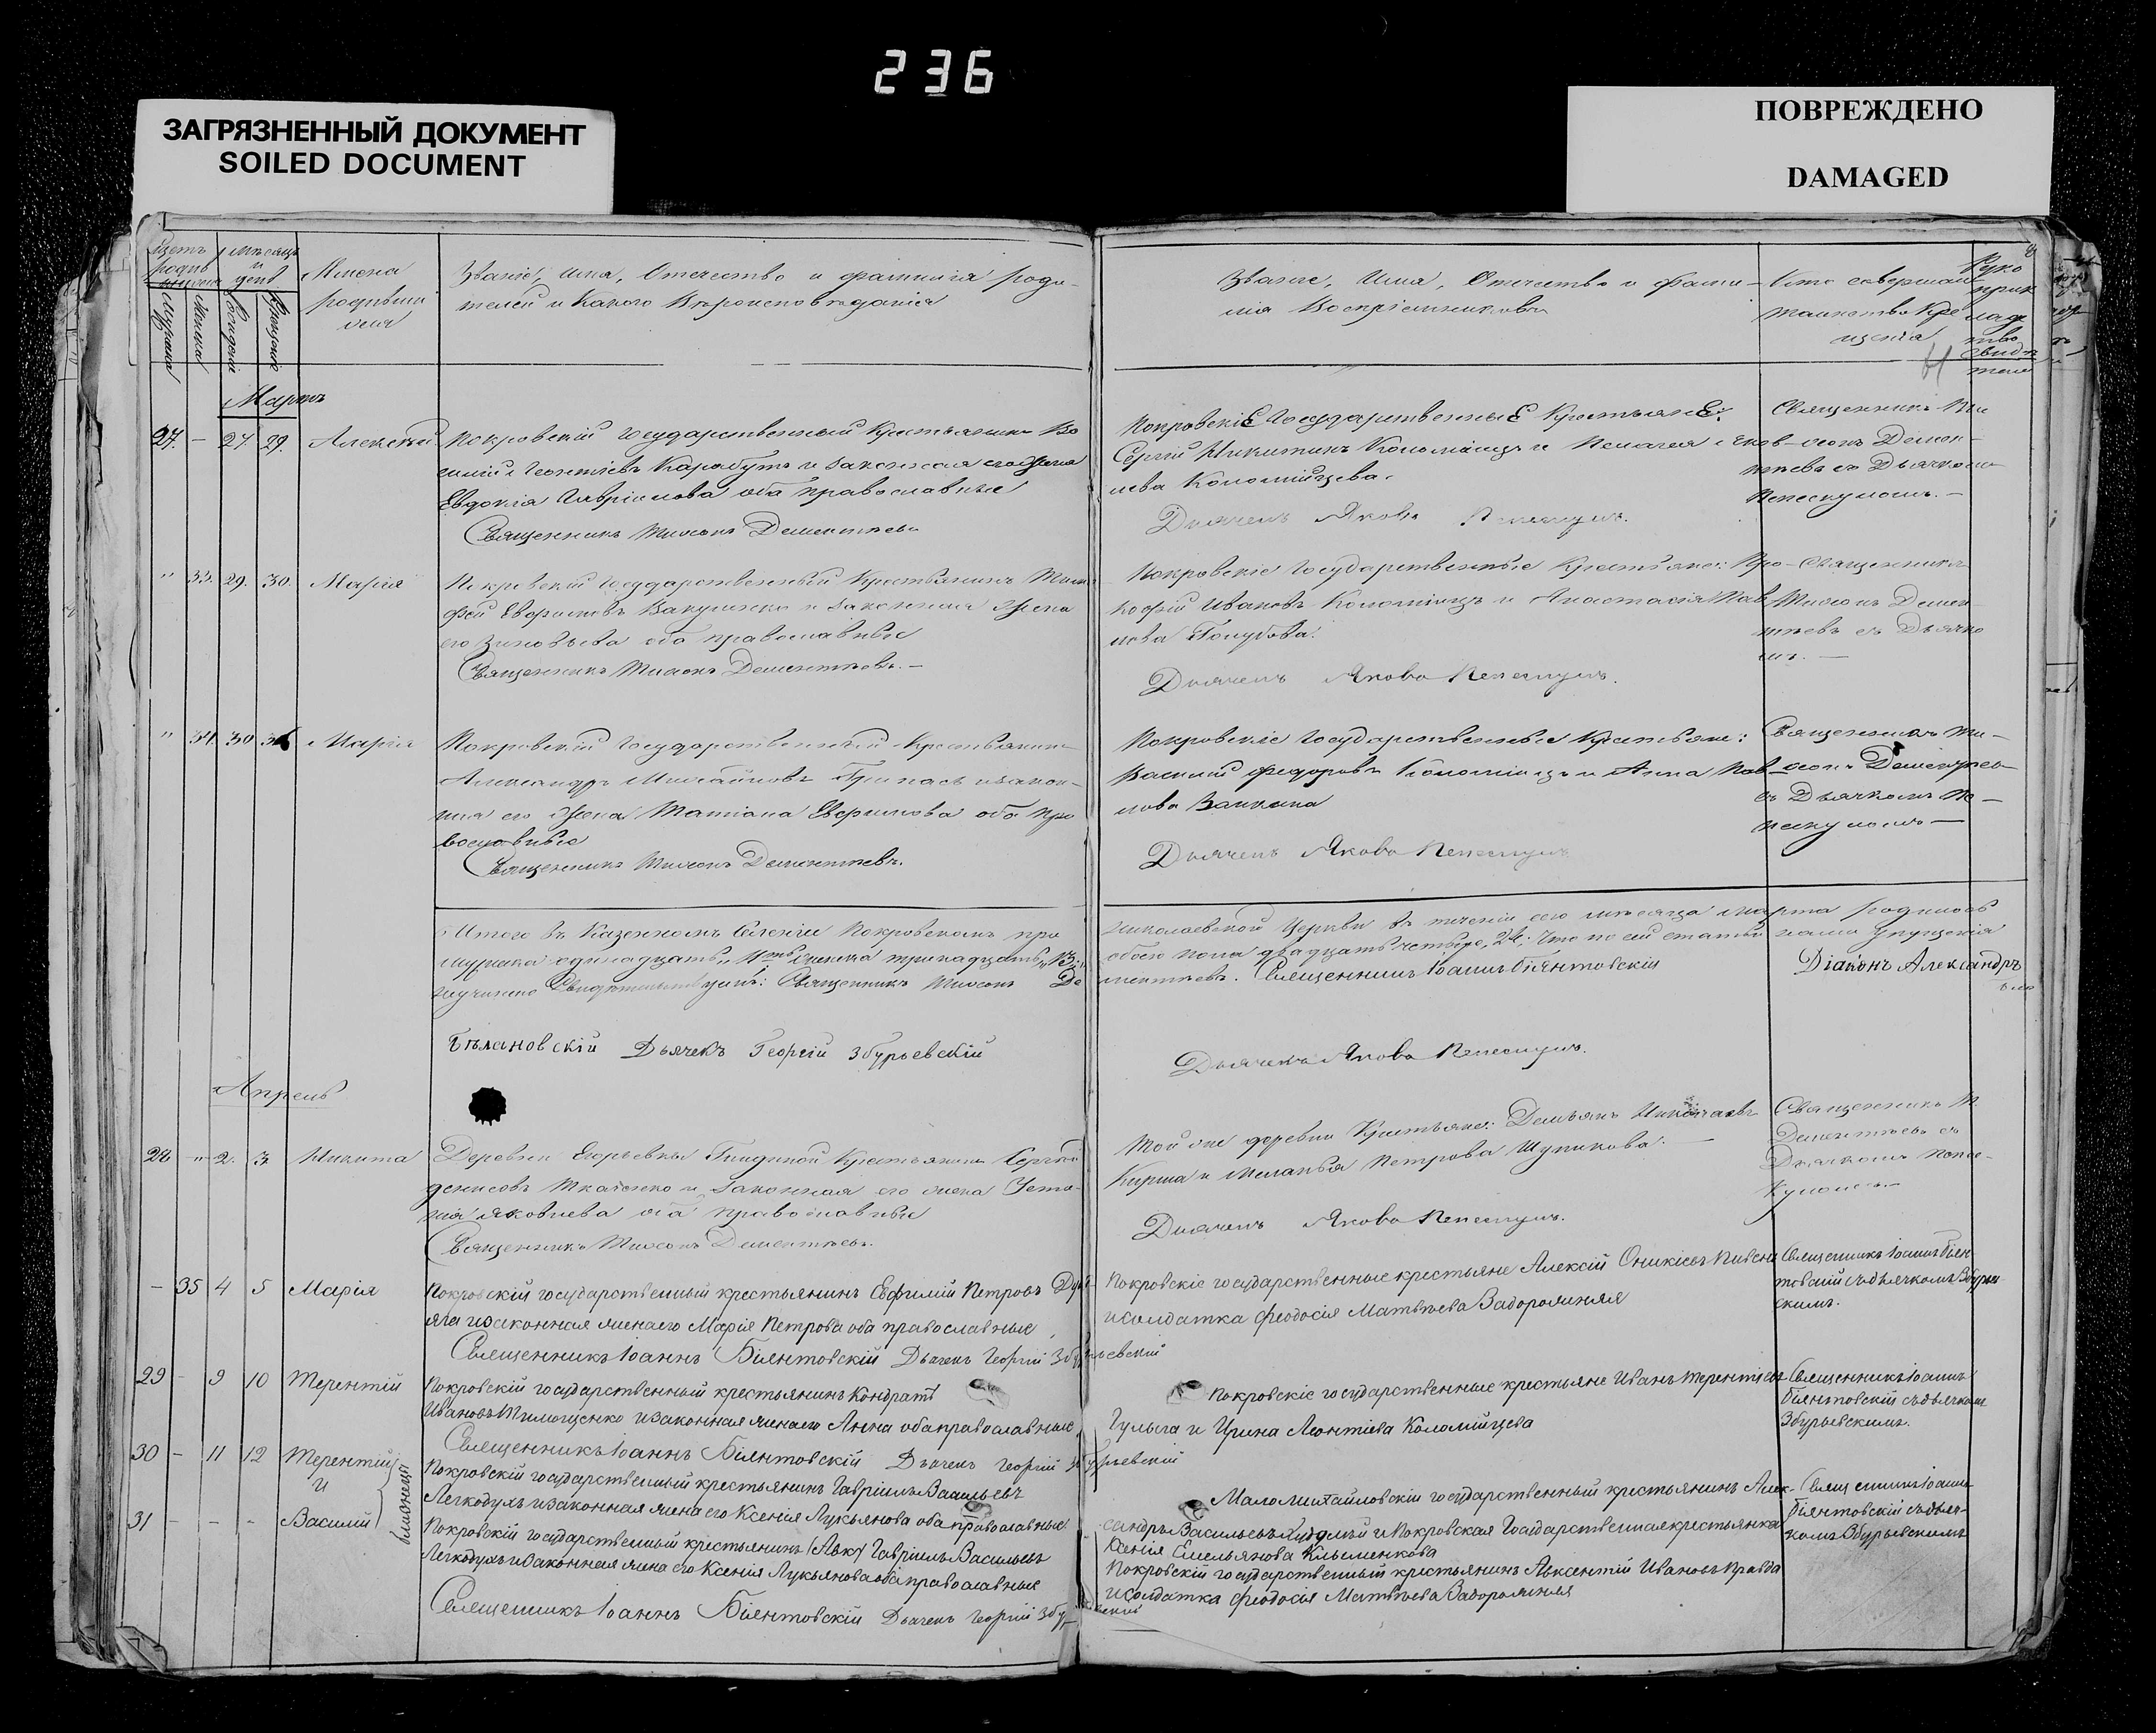 236
ЗАГРЯЗНЕННЫЙ ДОКУМЕНТ
SOILED DOCUMENT
ПОВРЕЖДЕНО
DAMAGED
Имена
родивши
Званіе, имя, Отечество и фамилія роди-
телей и Какого Вѣроисповѣданія
Званіе, Имя, Отечество и фами-
лія Воспріемниковъ
Кто совершал
таинство Кре
щенія
Руко
прик
ладс
тво
свидѣ
Мартъ
27. — 27 29. Алексѣй
Покровскій Государственный Крестьянинъ Ва
силій Леонтіевъ Карабутъ и законная его жена
Евдокія Гавріилова оба православные
Священникъ Тихонъ Дементьевъ
Покровскіе Государственные Крестьяне:
Сергій Никитинъ Коломіецъ и Пелагея
Коломійцева.
Дьячекъ Яковъ Пепескулъ.
Священникъ Ти-
хонъ Демен-
тьевъ съ Дьячкомъ
Пепескуломъ. —
" 33. 29. 30. Марія
Покровскій Государственный Крестьянинъ Тимо
фей Евфимовъ Вакуленко и законная жена
его Зиновьева оба православные
Священникъ Тихонъ Дементьевъ. —
Покровскіе Государственные Крестьяне: Про-
кофій Ивановъ Коломіецъ и Анастасія Пав
лова Голубова.
Дьячекъ Яковъ Пепескулъ.
Священникъ
Тихонъ Демен-
тьевъ съ Дьячко
мъ. —
" 34. 30
Марія
Покровскій Государственный Крестьянинъ
Александръ Михайловъ Припасъ и закон-
ная его жена Татіана Евфимова оба пра
вославные
Священникъ Тихонъ Дементьевъ.
Покровскіе Государственные Крестьяне:
Василій Федоровъ Коломіецъ и Анна Пав-
лова
Дьячекъ Яковъ Пепескулъ
Священникъ Ти-
хонъ Дементьевъ
съ Дьячкомъ Пе-
пескуломъ —
Итого въ Казенномъ Селеніи Покровскомъ при
Николаевской Церкви въ теченіи сего мѣсяца марта родилось
мужска одинадцать, 11ть женска тринадцать, 13,
обоего пола двадцать четыре, 24; Что по сей статьи нами упущенія
неучинено Свидѣтельствуемъ: Священникъ Тихонъ Де
ментьевъ. Священникъ Іоаннъ Біянтовскій
Діаконъ Александръ
Бѣлановскій Дьячекъ Георгій Збурьевскій
Дьячекъ Яковъ Пепескулъ.
Апрель
28 " 2. 3. Никита
Деревни Егорьевки Крестьянинъ Сергѣй
Денисовъ Ткаченко и законная его жена Усти-
нія Яковлева оба православные
Священникъ Тихонъ Дементьевъ.
Той же деревни Крестьяне: Демьянъ Николаевъ
Кирша и Меланья Петрова Шуликова. —
Дьячекъ Яковъ Пепескулъ.
Священникъ Т.
Дементьевъ съ
Дьячкомъ Пепес-
куломъ. —
— 35 4 5 Марія
Покровскій государственный крестьянинъ Евфимій Петровъ
и законная жена его Марія Петрова оба православные
Священникъ Іоаннъ Біянтовскій Дьячекъ Георгій Збурьевскій
Покровскіе государственные крестьяне Алексій Оникіевъ
и солдатка Феодосія Матвѣева Задорожняя
Священникъ Іоаннъ Біян-
товскій съ дьячкомъ Збурьев-
скимъ.
29 - 9 10 Терентій
Покровскій государственный крестьянинъ Кондратъ
Ивановъ Тимощенко и законная жена его Анна оба православные
Священникъ Іоаннъ Біянтовскій Дьячекъ Георгій Збурьевскій
Покровскіе государственные крестьяне Иванъ Терентіевъ
Гулыга и Ирина Леонтіева Коломійцева
Священникъ Іоаннъ
Біянтовскій съ дьячкомъ
Збурьевскимъ.
30 - 11 12 Терентій
и
близнецы
Покровскій государственный крестьянинъ Гавріилъ Васильевъ
Легкодухъ и законная жена его Ксенія Лукьянова оба православные
Маломихайловскій государственный крестьянинъ Алек-
сандръ Васильевъ и Покровская Государственная крестьянка
Ксенія Емельянова Клыменкова
Священникъ Іоаннъ
Біянтовскій съ дьяч-
комъ Збурьевскимъ
31 - - - Василій
Покровскій государственный крестьянинъ Гавріилъ Васильевъ
Легкодухъ и законная жена его Ксенія Лукьянова оба православные
Священникъ Іоаннъ Біянтовскій Дьячекъ Георгій Збурьевскій
Покровскій государственный крестьянинъ Авксентій Ивановъ Правда
и солдатка Феодосія Матвѣева Задорожняя